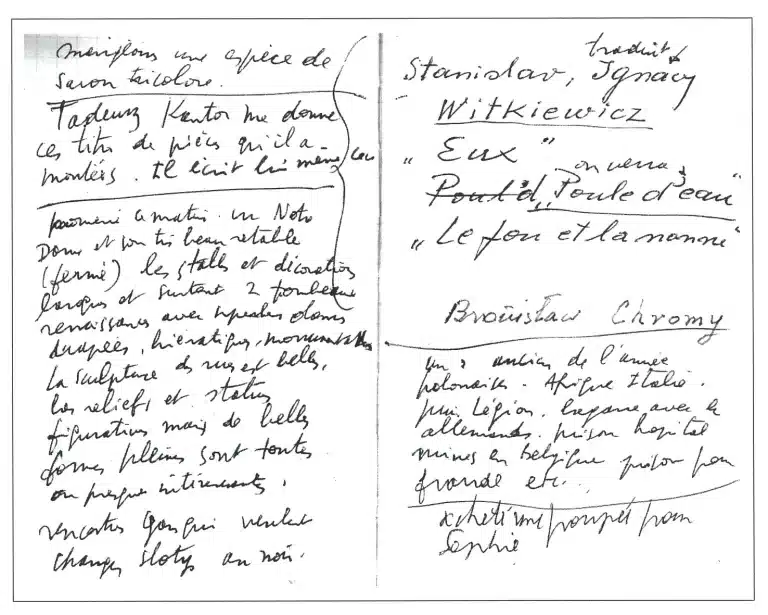 une espèce de
savon tricolore.
Tadeusz Kantor me donne
ces titres de pièces qu'il a
montées. Il écrit lui même
ce matin. un Notre
Dame et son très beau retable
(fermé) les stalles et décorations
et surtout 2 tombeaux
renaissance avec superbes
drapées, hiératiques,
La sculpture des rues est belle,
les reliefs et statues
figuratives mais de belles
formes pleines sont toutes
ou presque intéressantes.
rencontres qui veulent
changer slotys au noir.
traduit
Stanislav, Ignacy
Witkiewicz
"Eux"
on verra
Poul'd "Poule d'eau"
"Le fou et la nonne"
Broüistaw Chromy
un ancien de l'armée
polonaise. Afrique Italie.
puis Légion, avec les
allemands. prison hopital
mines en belgique prison pour
fraude etc...
acheté une poupée pour
Sophie